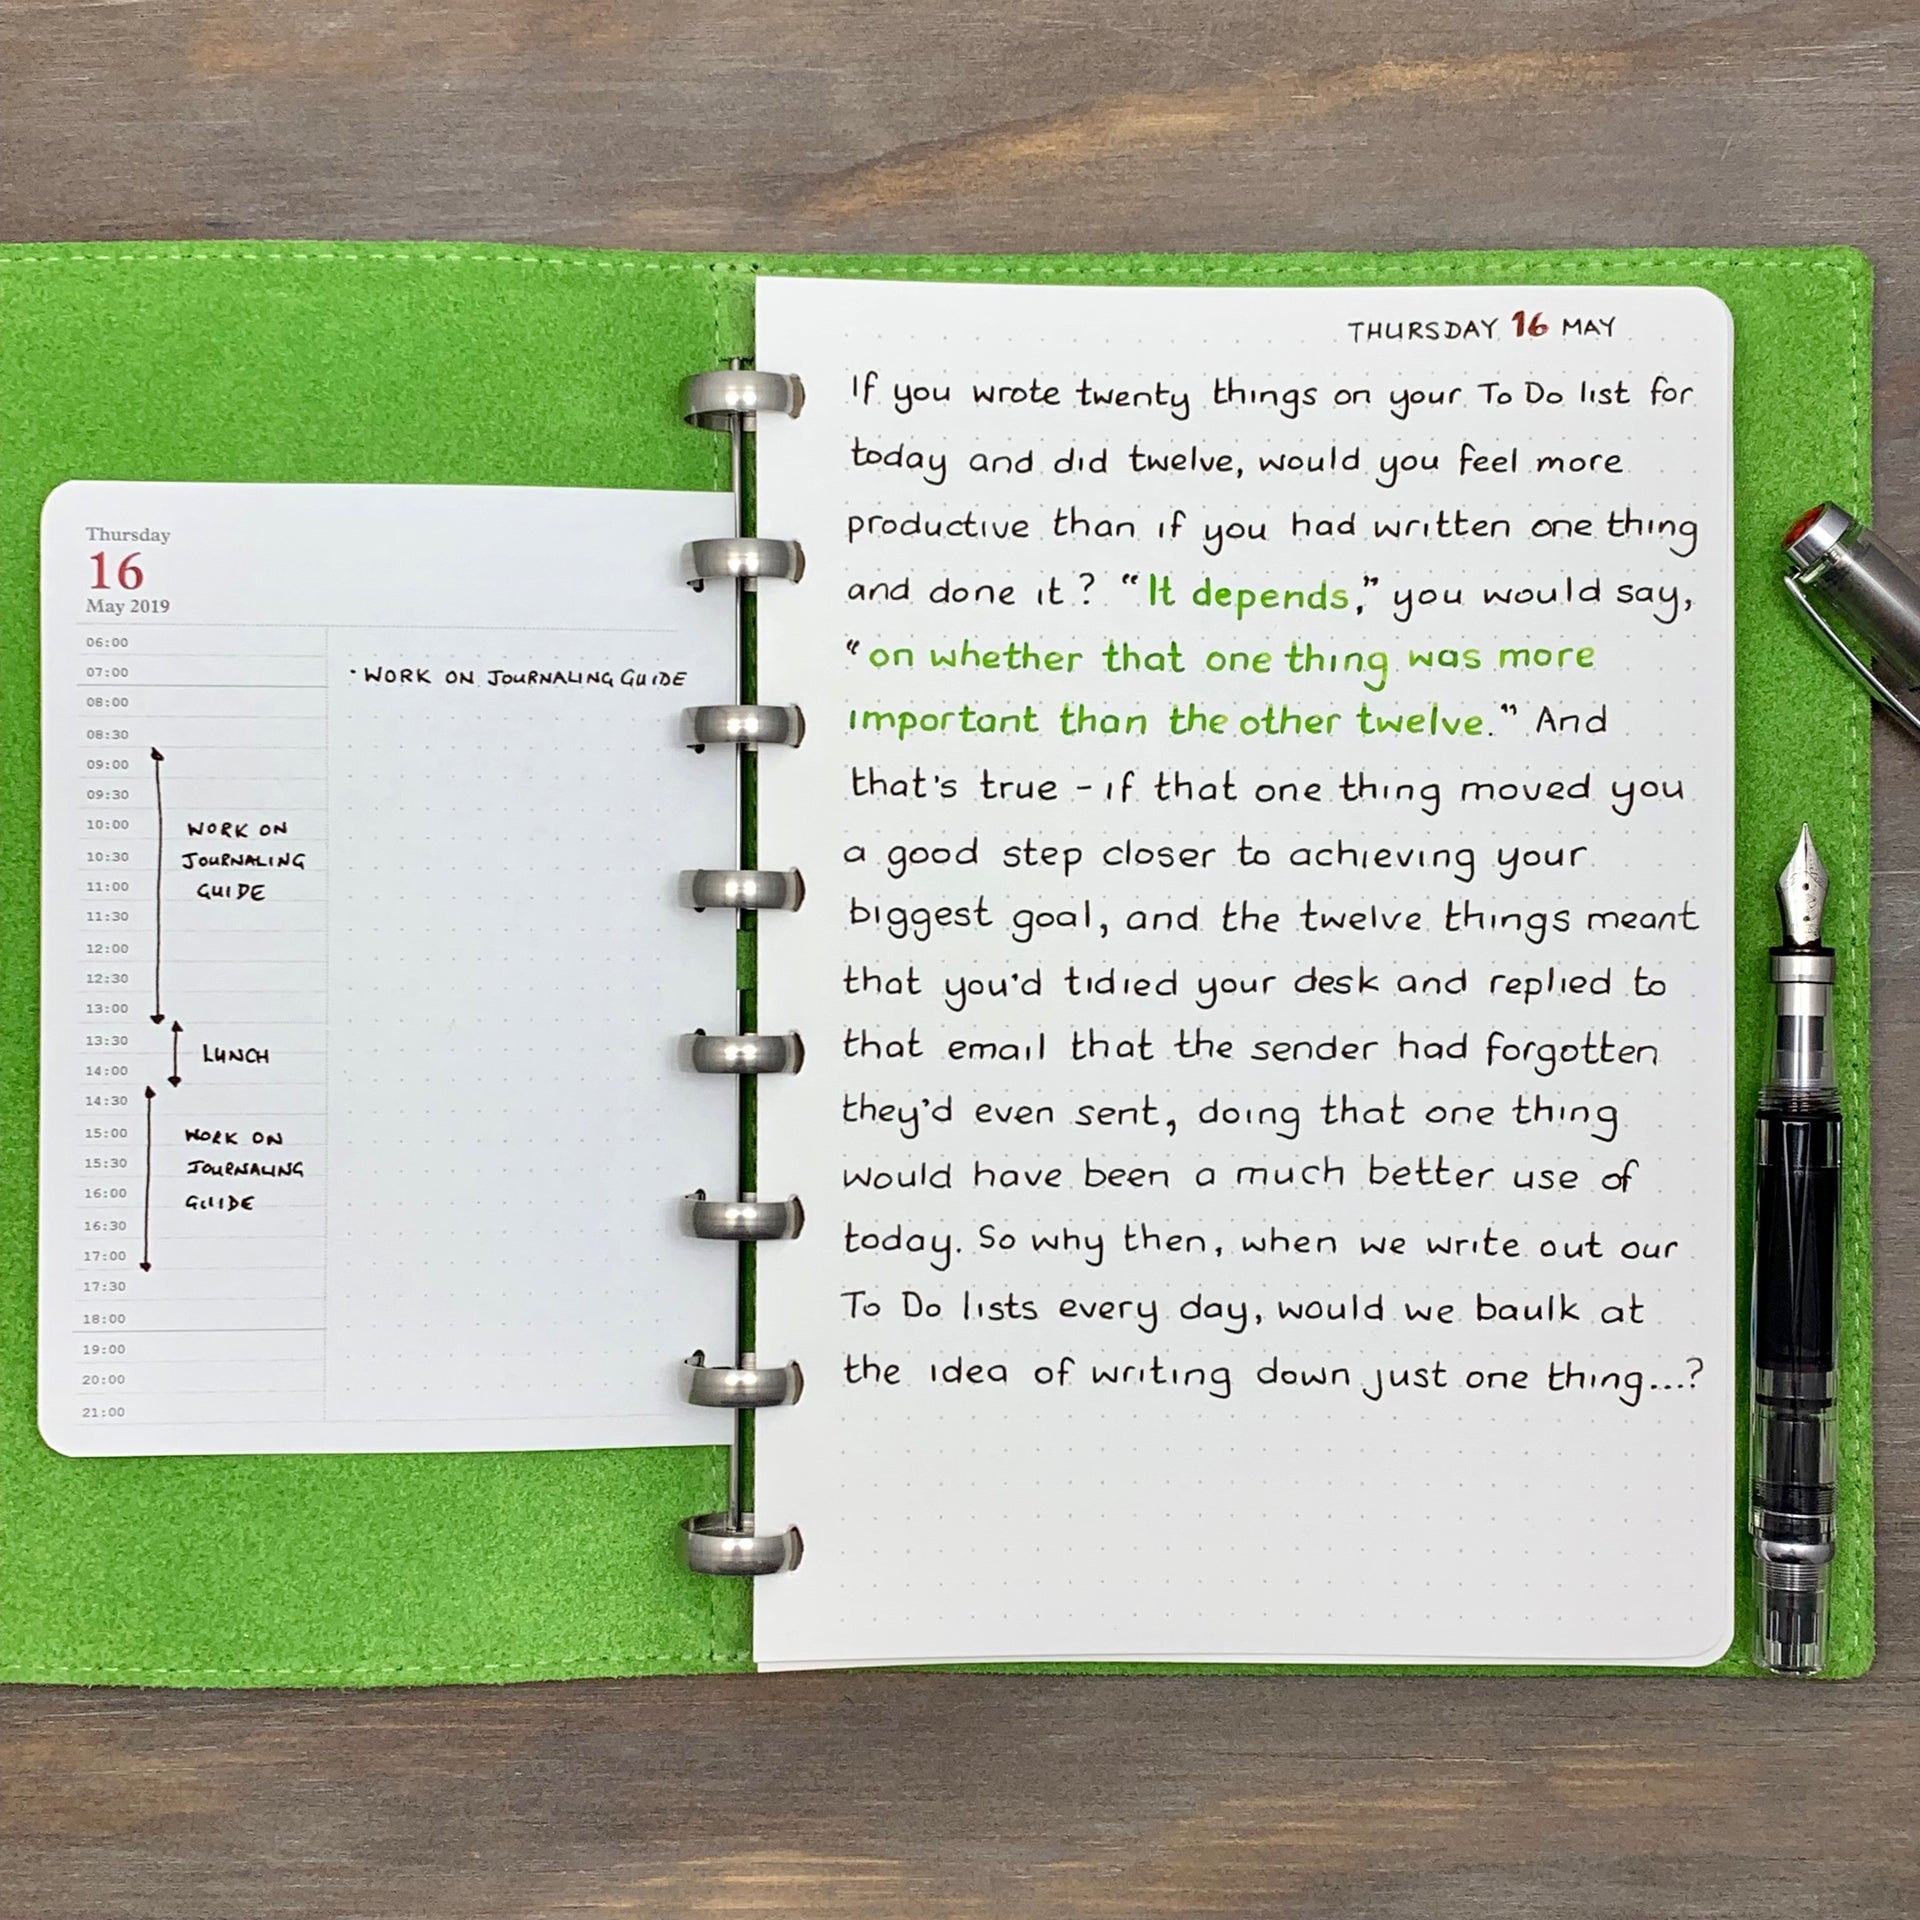 Thursday
16
May 2019
06:00
07:00
08:00
08:30
09:00
09:30
10:00
10:30
11:00
11:30
12:00
12:30
13:00
13:30
14:00
14:30
15:00
15:30
16:00
16:30
17:00
17:30
18:00
19:00
20:00
21:00
WORK ON
JOURNALING
GUIDE
LUNCH
WORK ON
JOURNALING
GUIDE
· WORK ON JOURNALING GUIDE
THURSDAY 16 MAY
If you wrote twenty things on your To Do list for
today and did twelve, would you feel more
productive than if you had written one thing
and done it? "It depends," you would say,
"on whether that one thing was more
important than the other twelve." And
that's true - if that one thing moved you
a good step closer to achieving your
biggest goal, and the twelve things meant
that you'd tidied your desk and replied to
that email that the sender had forgotten
they'd even sent, doing that one thing
would have been a much better use of
today. So why then, when we write out our
To Do lists every day, would we baulk at
the idea of writing down just one thing...?